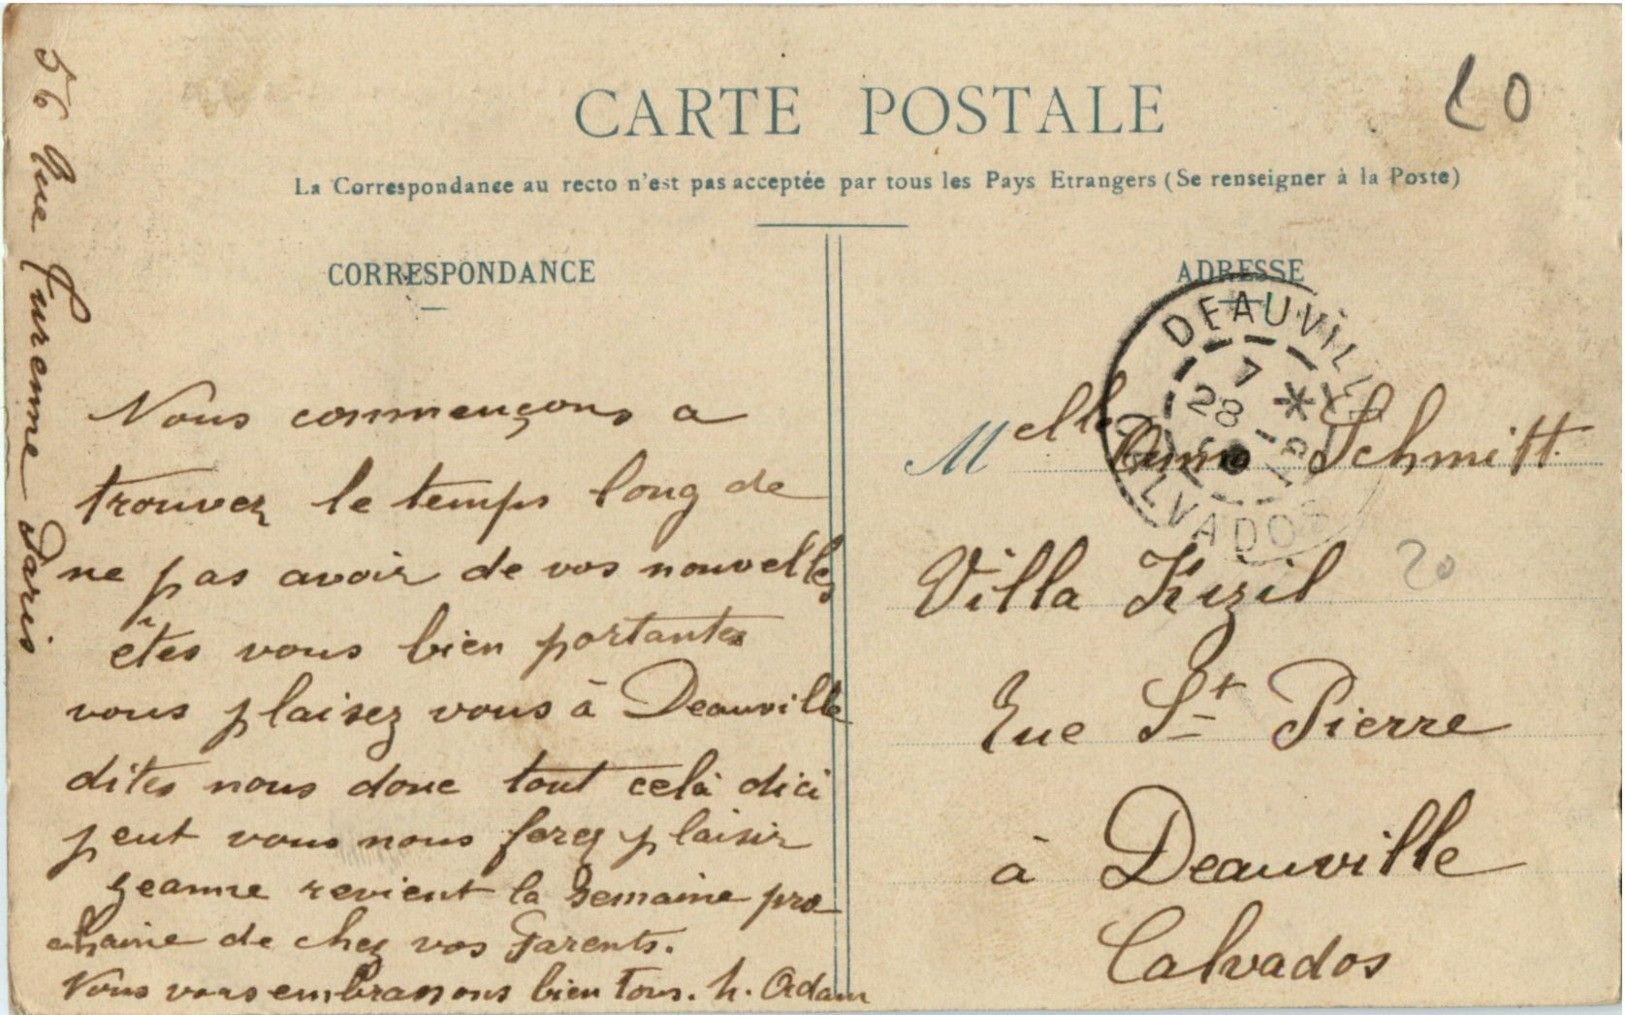 CARTE POSTALE
La Correspondance au recto n'est pas acceptée par tous les Pays Etrangers (Se renseigner à la Poste)
CORRESPONDANCE
56 Rue Turenne Paris
Nous commençons a
trouver le temps long de
ne pas avoir de vos nouvelles
êtes vous bien portantes
vous plaisez vous à Deauville
dites nous donc tout celà dici
peut vous nous ferez plaisir
Jeanne revient la semaine pro
chaine de chez vos Parents.
Nous vous embrassons bien tous. h. Adam
ADRESSE
DEAUVILLE
7 *
28
CALVADOS
Melle Anna Schmitt.
Villa Kizil
Rue St Pierre
à Deauville
Calvados
20